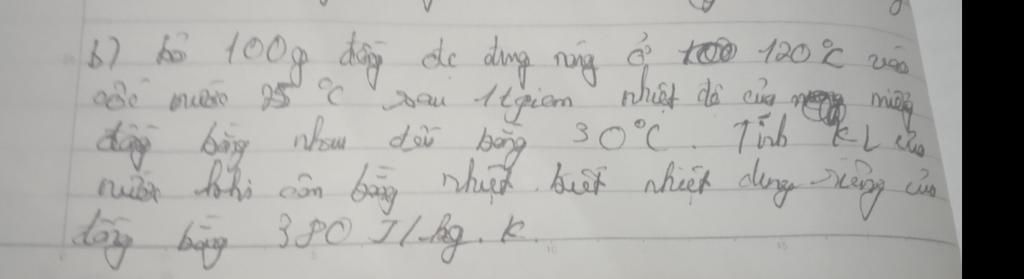 b) bỏ 100g đồng đc đung nóng ở 120°C vào
cốc nước 25 °C sau 1 tgian nhiệt độ của miếng
đồng bằng nhau đều bằng 30°C. Tính KL của
nước khi cân bằng nhiệt. biết nhiệt dung riêng của
đồng bằng 380 J/kg.K.